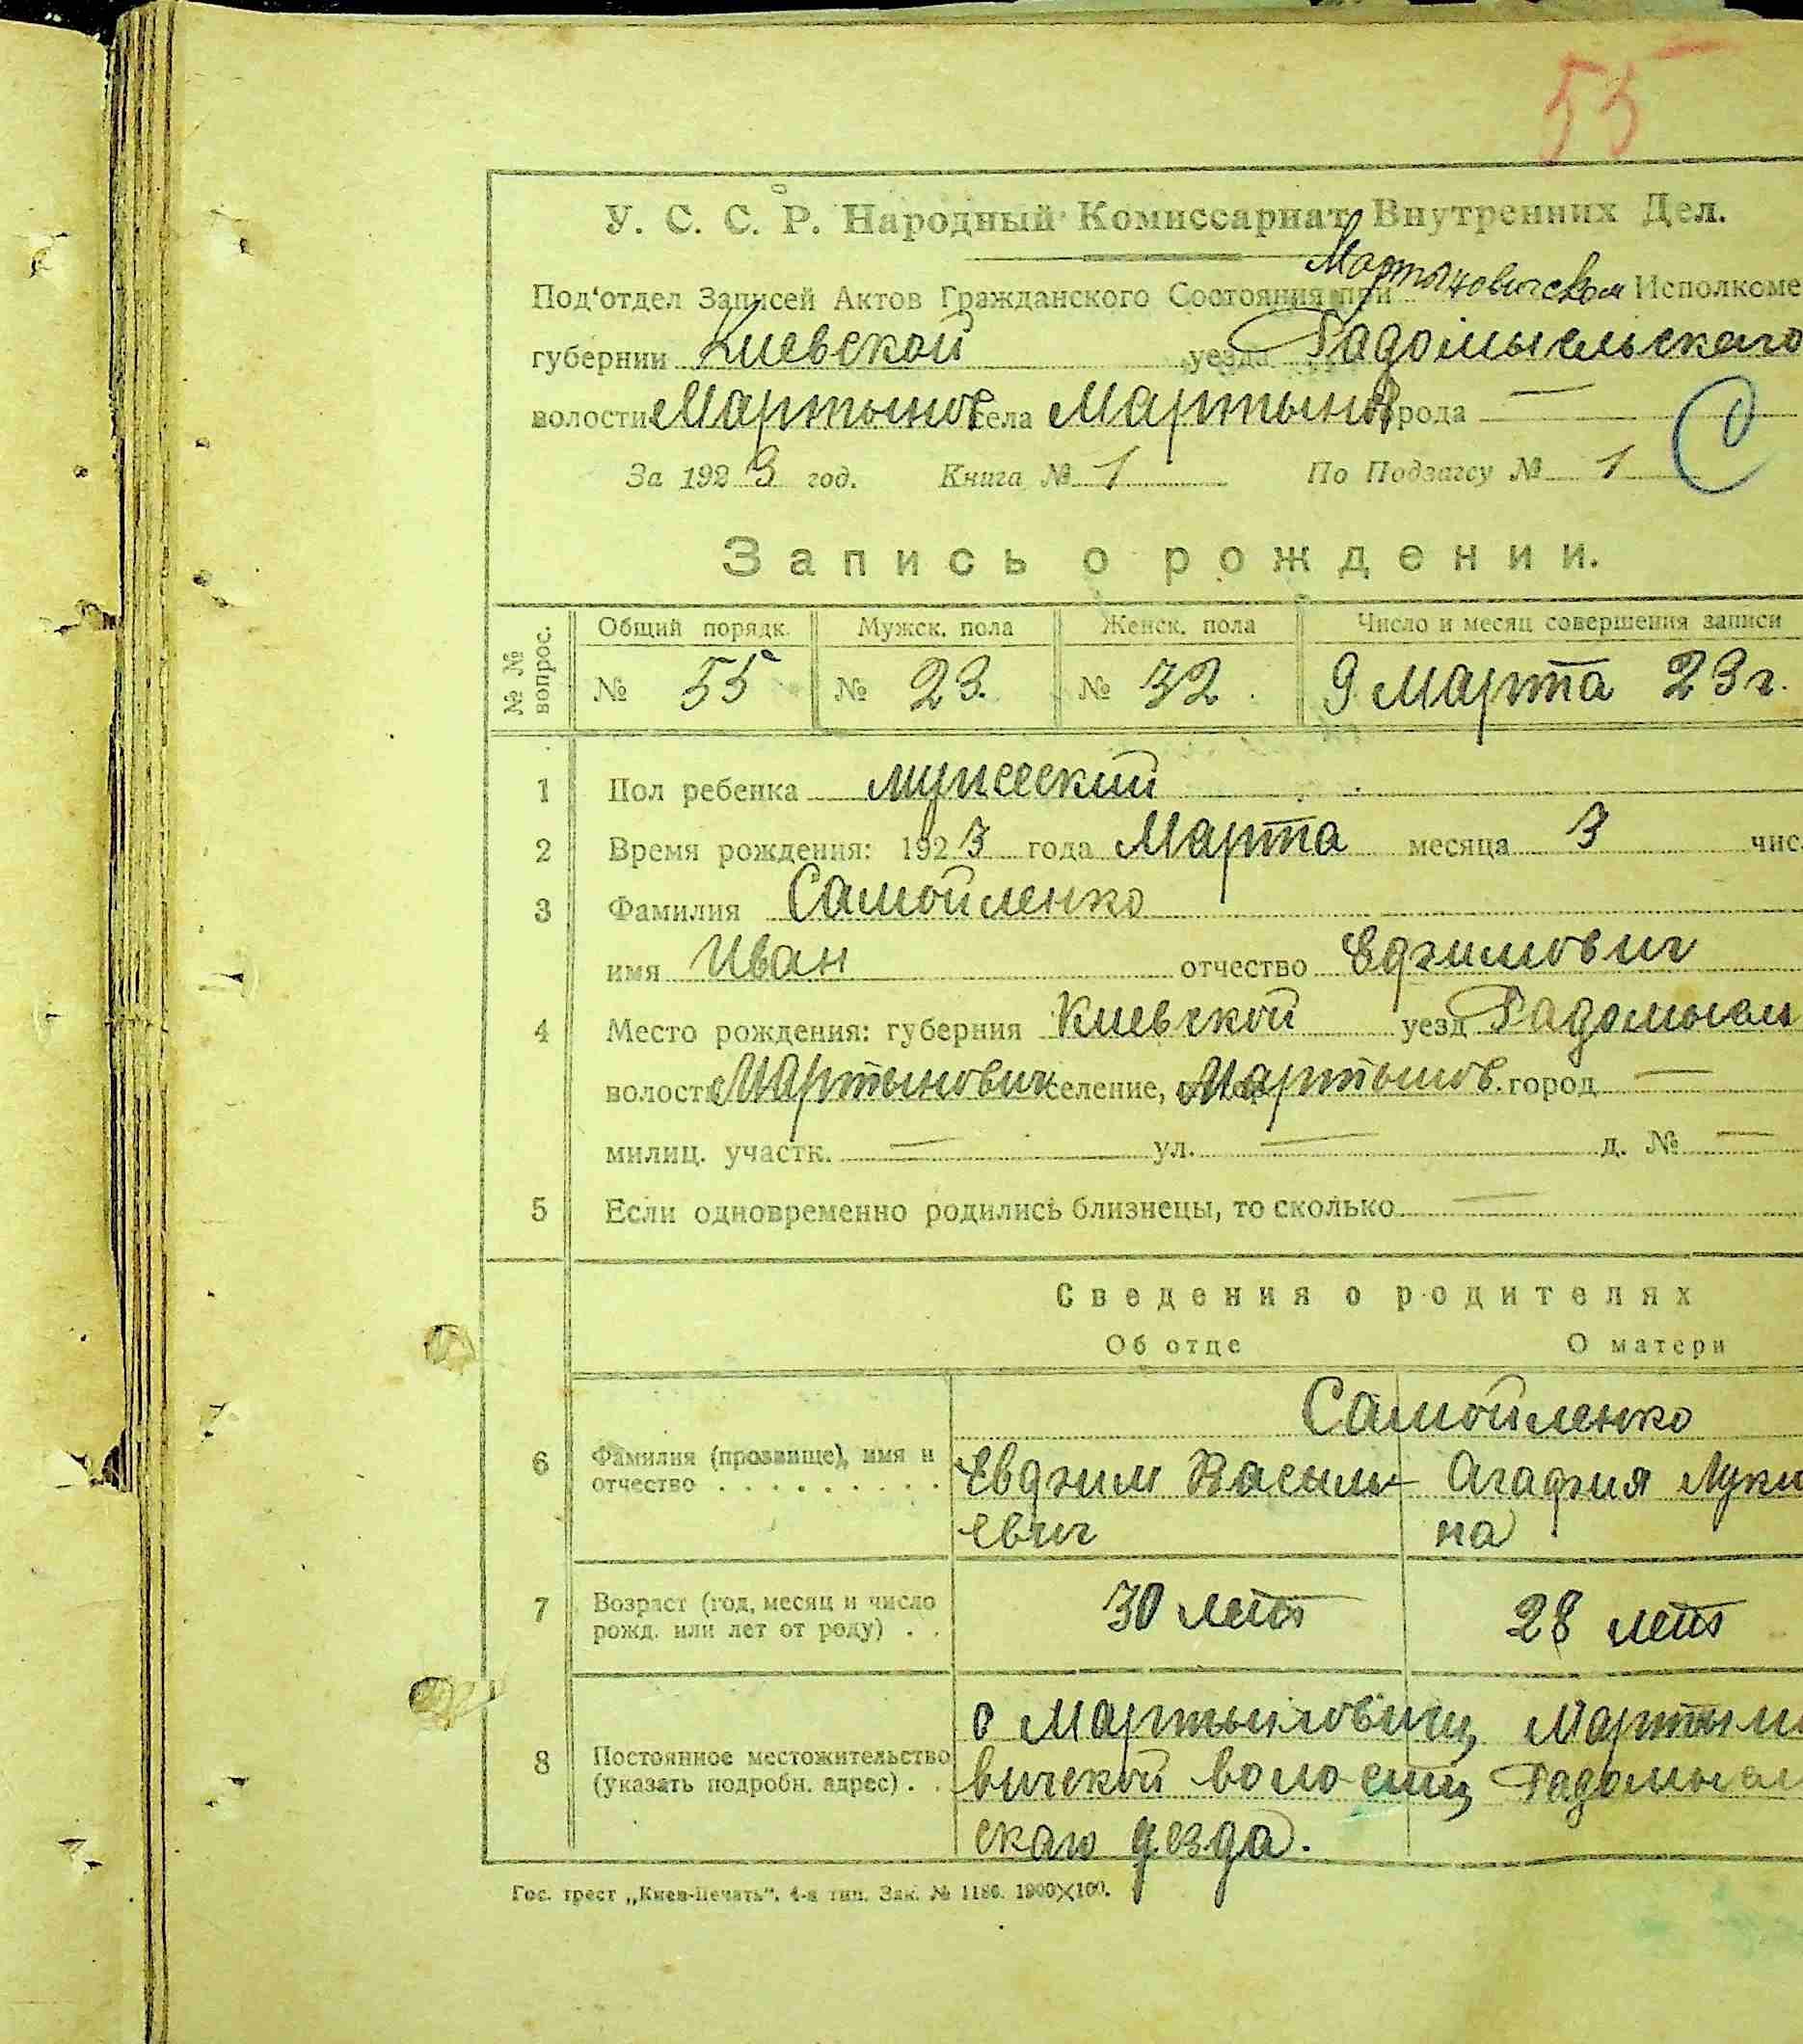 55
У. С. С. Р. Народный Комиссариат Внутренних Дел.
Под'отдел Записей Актов Гражданского Состояния при Мартыновическом Исполкоме
губернии Киевской уезда Радомысльского
волости Мартынов села Мартынов города —
За 1923 год. Книга № 1 По Подзагсу № 1
Запись о рождении.
№ № вопрос. Общий порядк. Мужск. пола Женск. пола Число и месяц совершения записи
№ 55 № 23. № 32. 9 Марта 23 г.
1 Пол ребенка мужеский
2 Время рождения: 1923 года Марта месяца 3 чис.
3 Фамилия Самойленко
имя Иван отчество Ефимович
4 Место рождения: губерния Киевской уезд Радомысл
волость Мартынович селение, Мартынов. город —
милиц. участк. — ул. — д. № —
5 Если одновременно родились близнецы, то сколько —
Сведения о родителях
Об отце О матери
Самойленко
6 Фамилия (прозвище), имя и отчество Евфим Василь- евич Агафия Луки на
7 Возраст (год, месяц и число рожд. или лет от роду) 30 лет 28 лет
8 Постоянное местожительство (указать подробн. адрес) с Мартыновичи, Мартыно
вической волости, Радомысл
скаго уезда.
Гос. трест „Киев-Печать". 4-я тип. Зак. № 1186. 1000×100.